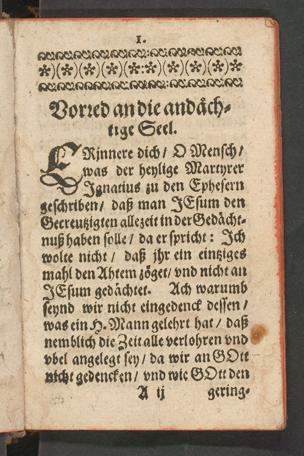 1.
Vorred an die andäch-
tige Seel.
ERjnnere dich / O Mensch /
was der heylige Martyrer
Ignatius zu den Ephesern
geschriben / daß man JEsum den
Gecreutzigten allezeit in der Gedächt-
nuß haben solle / da er spricht: Jch
wolte nicht / daß jhr ein eintziges
mahl den Ahtem zöget / vnd nicht an
JEsum gedächtet. Ach warumb
seynd wir nicht eingedenck dessen /
was ein H. Mann gelehrt hat / daß
nemblich die Zeit alle verlohren vnd
vbel angelegt sey / da wir an GOtt
nicht gedencken / vnd wie GOtt den
A ij gering-